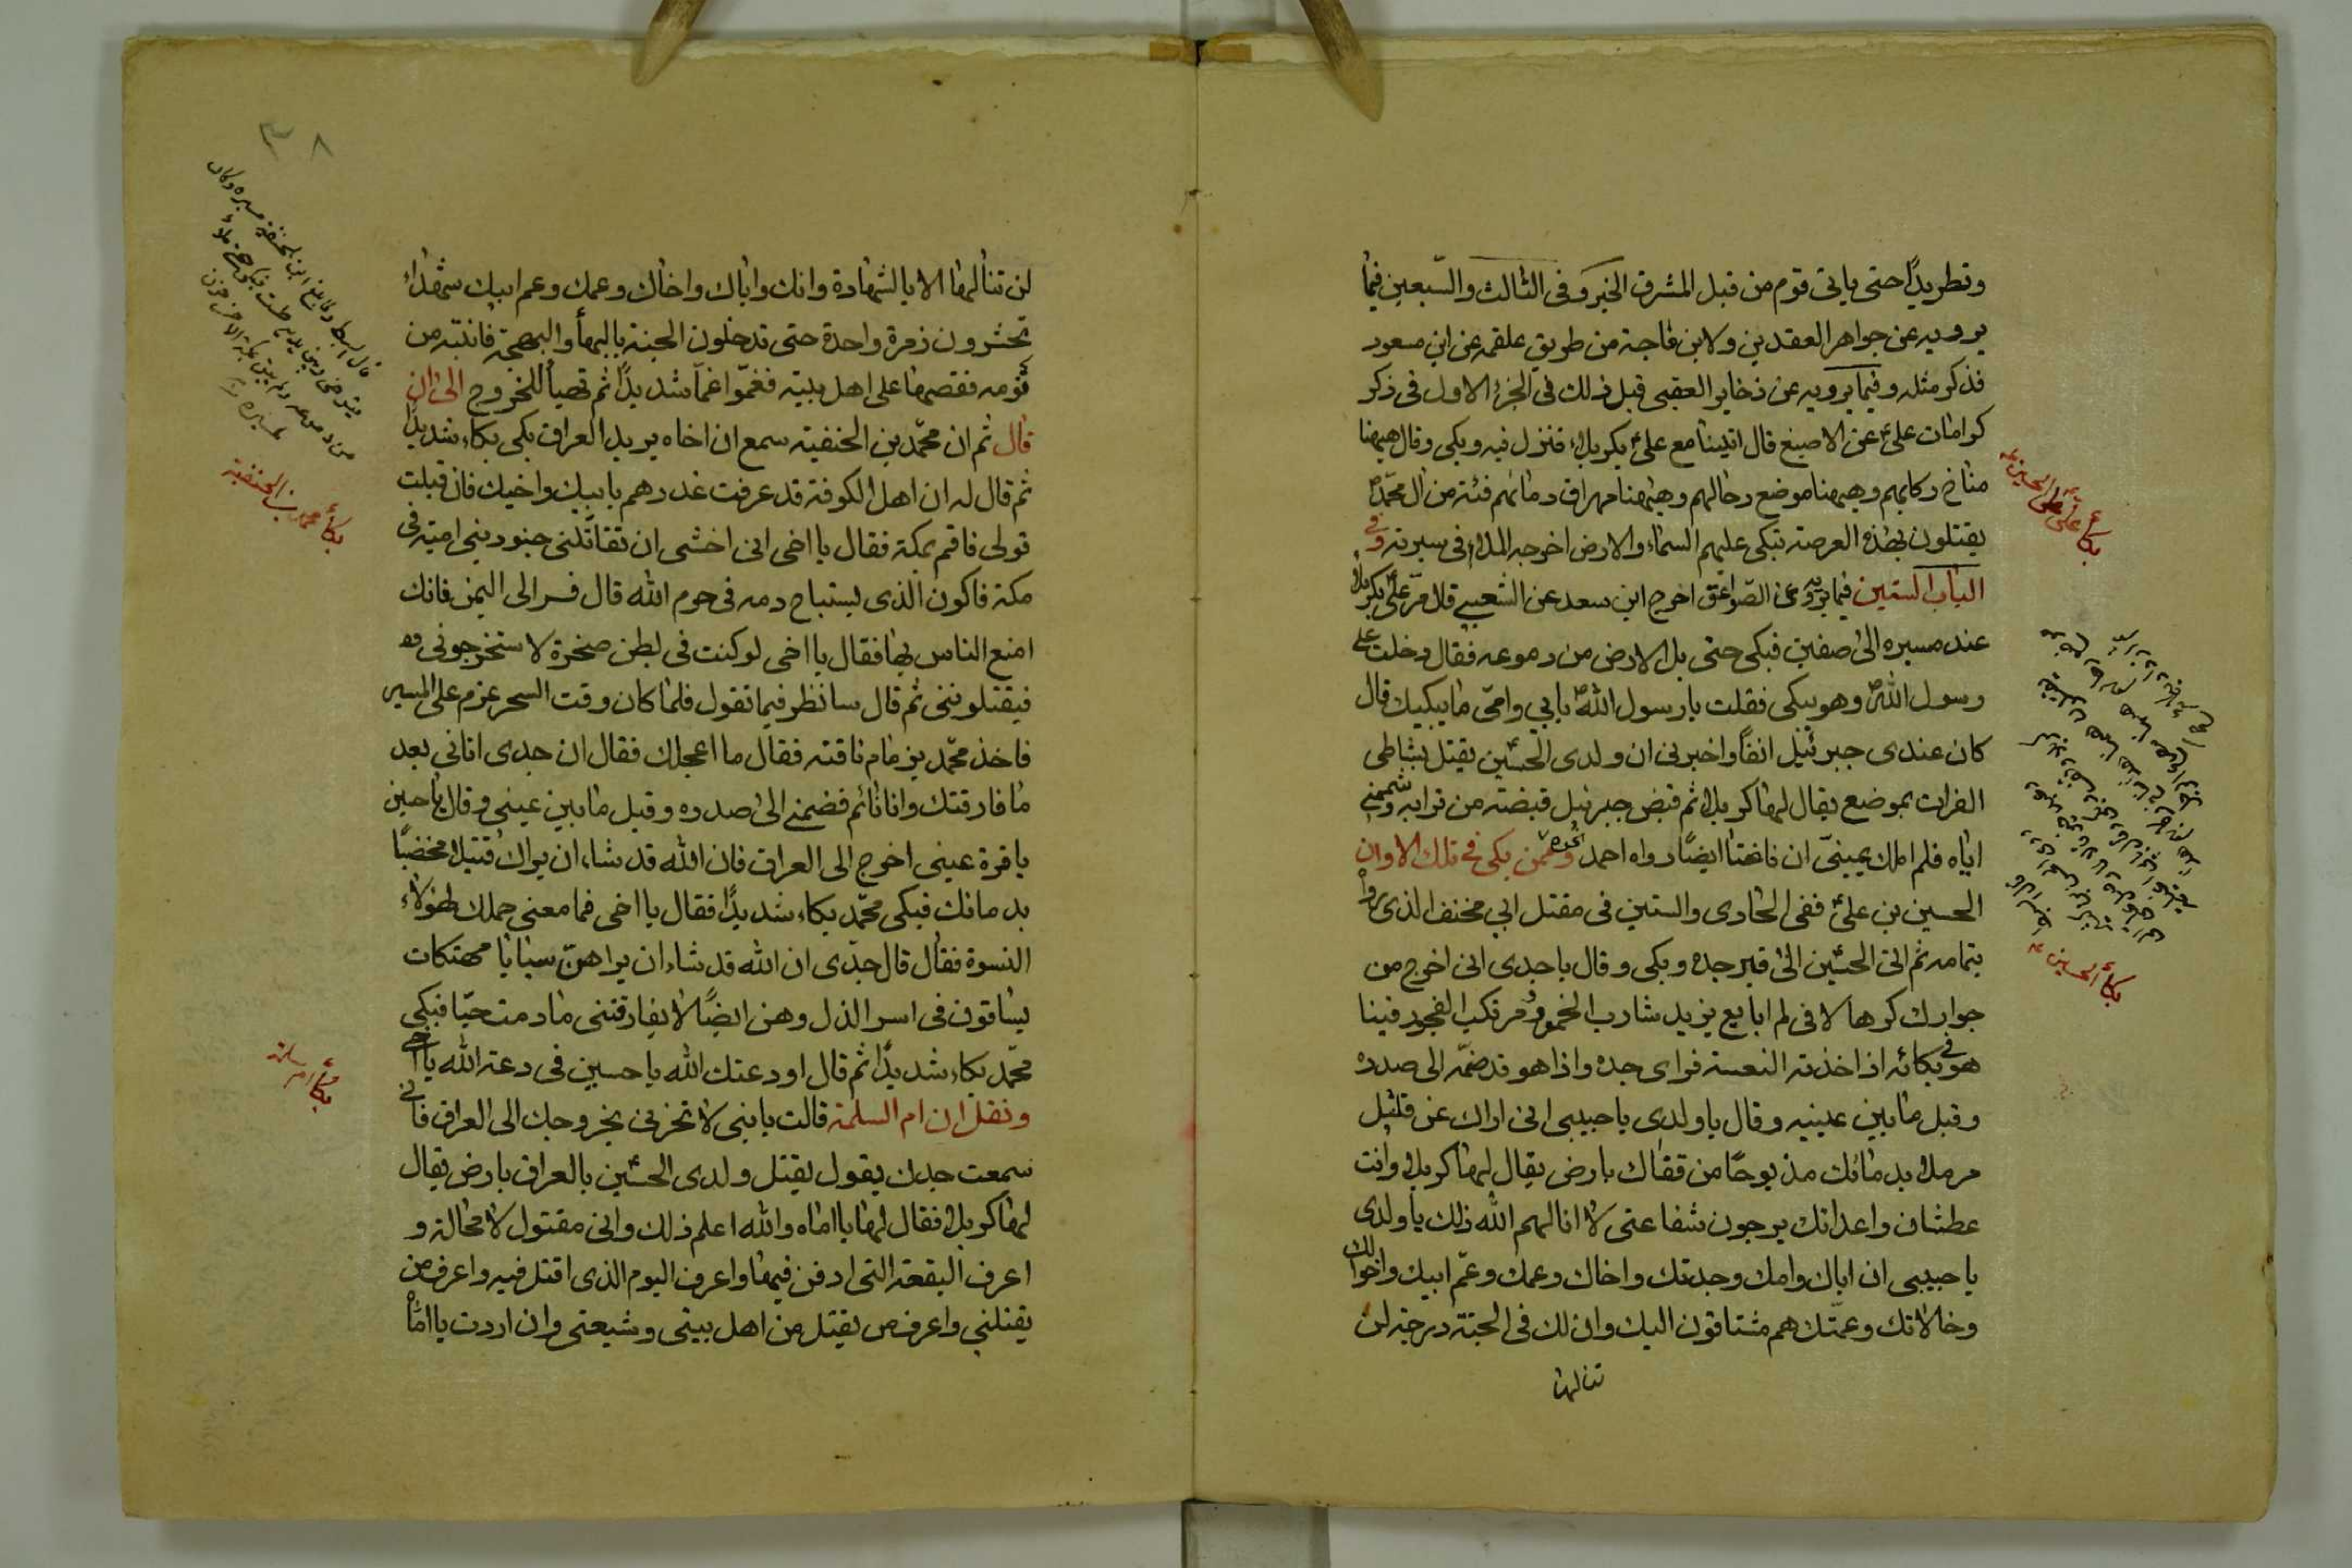 وتطريدًا حتى ياتى قوم من قبل المشرق الخبر وفى الثالث والسّبعين فيما
يرويه عن جواهر العقدين ولابن ماجة من طريق علقمه عن ابن مسعود
فذكر مثله وفيما يرويه عن ذخاير العقبى قبل ذلك فى الجزء الاول فى ذكر
كرامات علىّ عن الاصبغ قال اتينا مع علىّ بكربلاء فنزل فيه وبكى وقال هيهنا
مناخ ركابهم وهيهنا موضع رحالهم وهيهنا مهراق دمائهم فئة من ال محمّدؐ
يقتلون بهذه العرصه تبكى عليهم السماء والارض اخرجه الملا فى سيرته وفى
الباب الستين فيما يرويه عن الصّواعق اخرج ابن سعد عن الشعبى قال مرّ علىّ بكربلا
عند مسيره الى صفين فبكى حتى بل الارض من دموعه فقال دخلت على
رسول اللهؐ وهو يبكى فقلت يارسول اللهؐ بابي وامّى ما يبكيك قال
كان عندى جبرئيل انفًا واخبرنى ان ولدى الحسين يقتل بشاطى
الفرات بموضع يقال لها كربلا ثم قبض جبرئيل قبضته من ترابه وشممنى
اياه فلم املك عينىّ ان فاضتا ايضًا رواه احمد نحوه وممّن بكى فى تلك الاوان
الحسين بن علىّ ففى الحادى والستين فى مقتل ابي مخنف الذى رواه
بتمامه ثم اتى الحسين الى قبر جده وبكى وقال ياجدى انى اخرج من
جوارك كرها لانى لم ابايع يزيد شارب الخمور ومرتكب الفجور فبينا
هو فى بكائه اذا خذته النعسة فراى جده واذا هو قد ضمّه الى صدره
وقبل ما بين عينيه وقال ياولدى ياحبيبى انى اراك عن قليل
مرملا بدمائك مذبوحًا من قفاك بارض يقال لها كربلا وانت
عطشان واعدائك يرجون شفاعتى لا انالهم الله ذلك يا ولدى
ياحبيبى ان اباك وامك وجدتك واخاك وعمك وعمّ ابيك واخوالك
وخالاتك وعمّتك هم مشتاقون اليك وان لك فى الجنّة درجة لن
تنالها
بكاء علىّ على الحسين
بكاء الحسين
٣٨
لن تنالها الا بالشهادة وانك واباك واخاك وعمك وعم ابيك شهداء
تحشرون زمرة واحدة حتى تدخلون الجنة بالبهاء والبهجة فانتبه من
نومه فقصها على اهل بيته فغمّوا غمًّا شديدًا ثم تهيأ للخروج الى ان
قال ثم ان محمّد بن الحنفيّه سمع ان اخاه يريد العراق بكى بكاء شديدًا
ثم قال له ان اهل الكوفة قد عرفت غدرهم بابيك واخيك فان قبلت
قولى فاقم بمكة فقال يا اخى انى اخشى ان تقاتلنى جنود بنى اميّه فى
مكة فاكون الذى يستباح دمه فى حرم الله قال فسر الى اليمن فانك
امنع الناس بها فقال يا اخى لو كنت فى بطن صخرة لاستخرجونى منه
فيقتلوننى ثم قال سانظر فيما تقول فلما كان وقت السحر عزم على المسير
فاخذ محمّد بزمام ناقته فقال ما اعجلك فقال ان جدى اتانى بعد
ما فارقتك وانا نائم فضمنى الى صدره وقبل ما بين عينى وقال ياحسين
يا قرة عينى اخرج الى العراق فان الله قد شاء ان يراك قتيلا مخضبًا
بدمائك فبكى محمّد بكاء شديدًا فقال يا اخى فما معنى حملك لهؤلاء
النسوة فقال قال جدّى ان الله قد شاء ان يراهنّ سبايا مهتكات
يساقون فى اسر الذل وهن ايضًا لا يفارقننى ما دمت حيّا فبكى
محمّد بكاء شديدًا ثم قال اودعتك الله ياحسين فى دعة الله يا اخى
ونقل ان ام السلمة قالت يا بنى لا تحزنى بخروجك الى العراق فانى
سمعت جدك يقول يقتل ولدى الحسين بالعراق بارض يقال
لها كربلا فقال لها يا اماه والله اعلم ذلك وانى مقتول لا محالة و
اعرف البقعة التى ادفن فيها واعرف اليوم الذى اقتل فيه واعرف من
يقتلنى واعرف من يقتل من اهل بيتى وشيعتى وان اردت يا اماه
بكاء محمد بن الحنفيه
بكاء ام سلمة